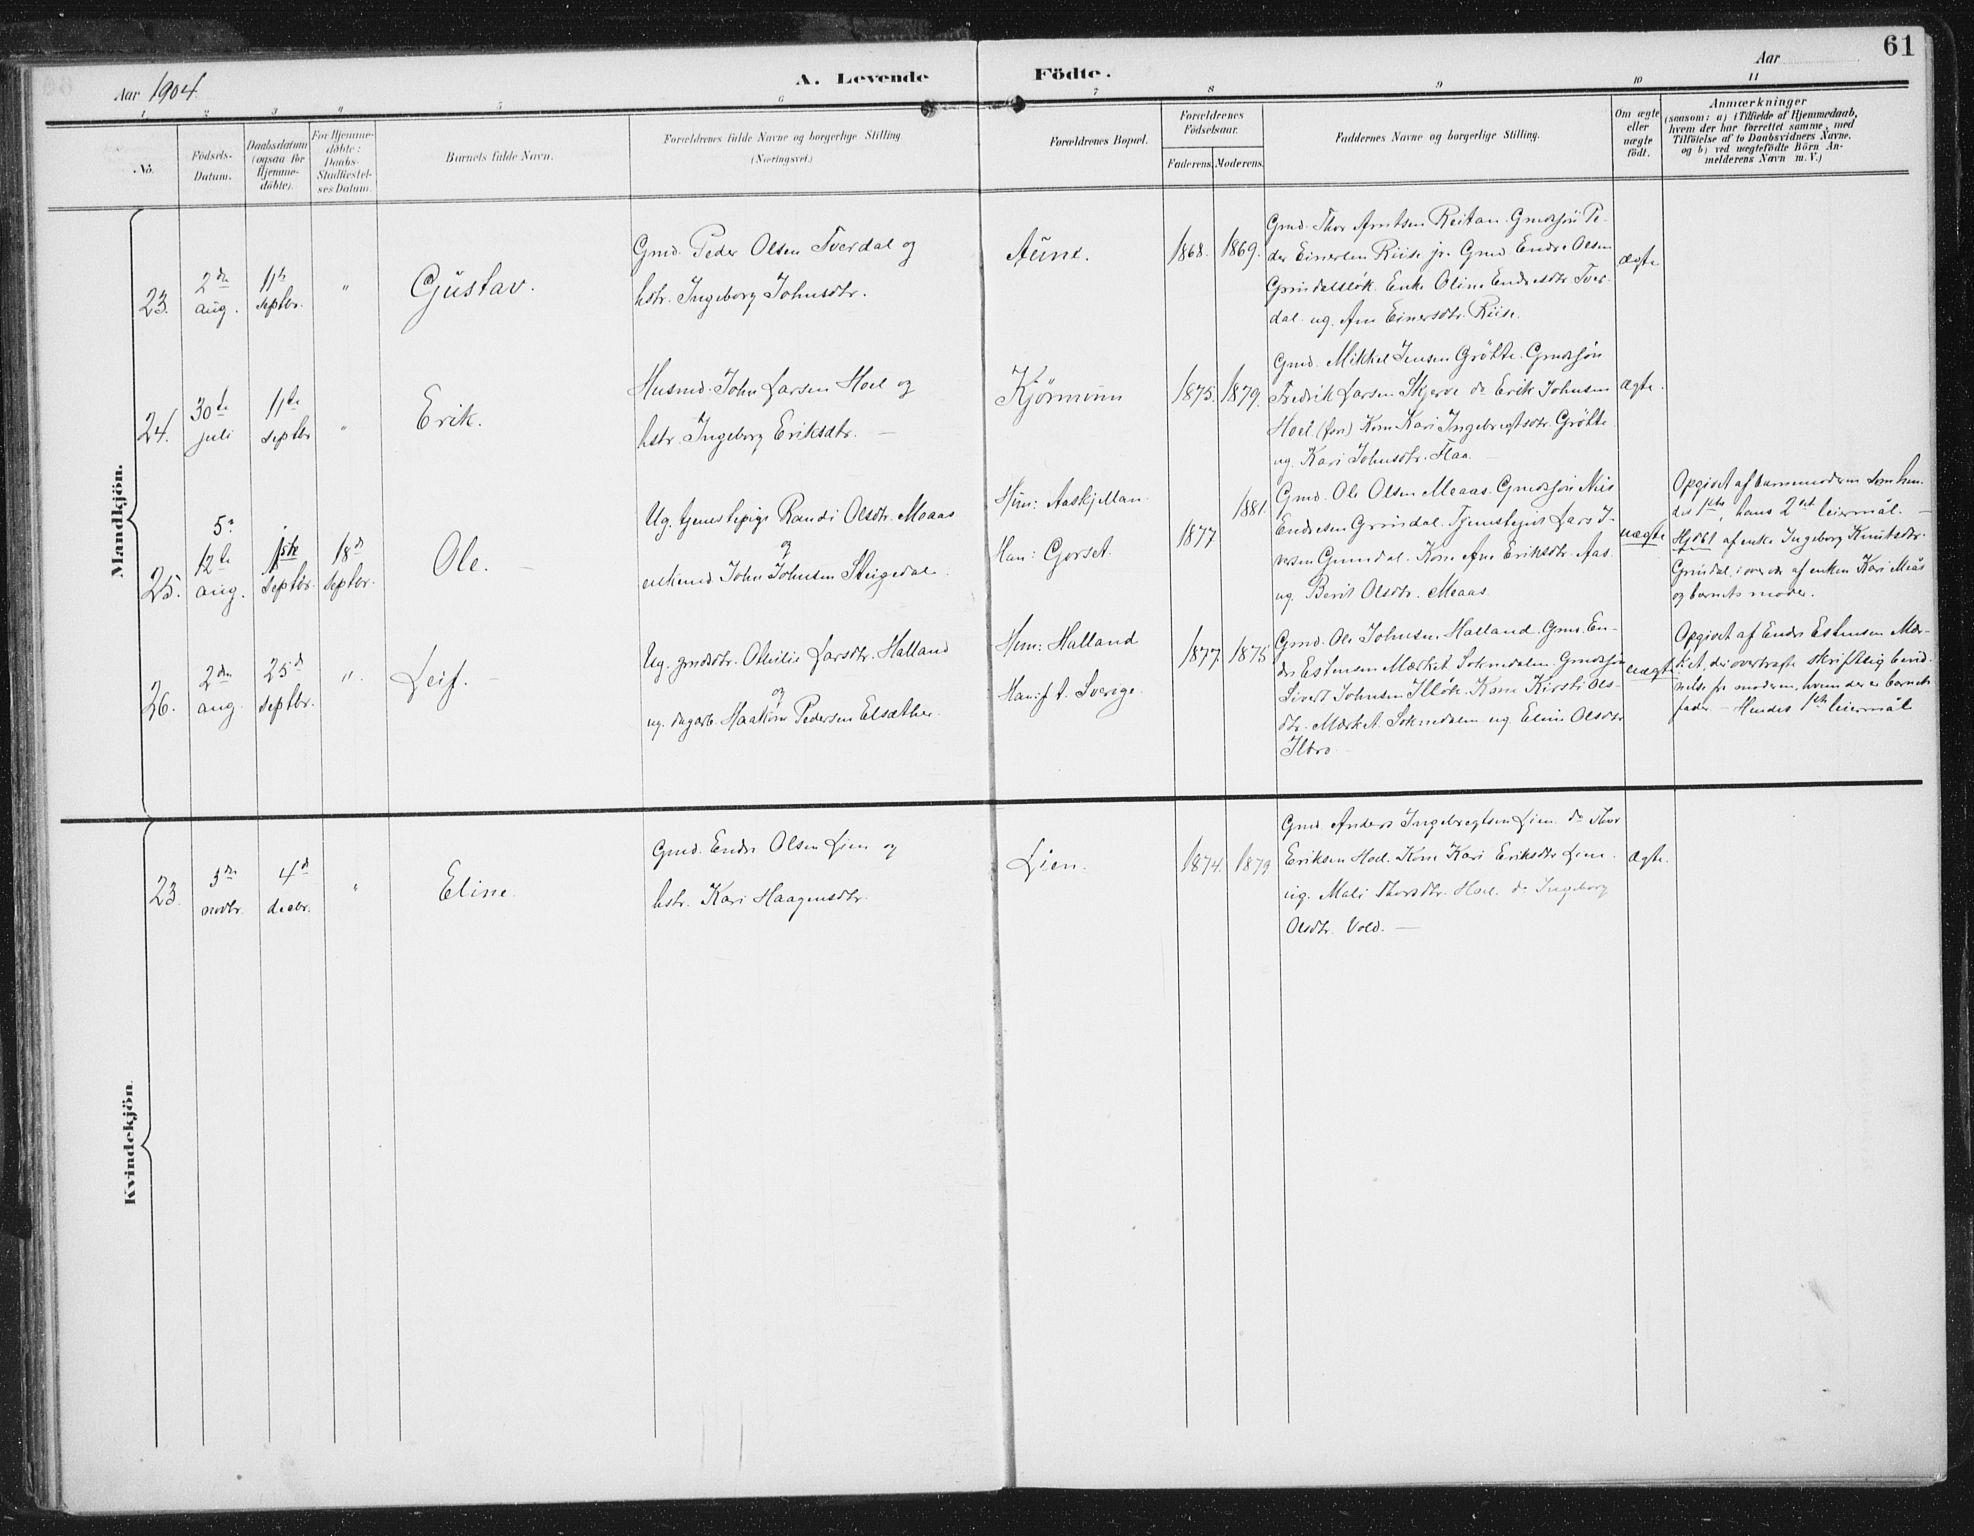 61
Aar 1904.
A. Levende Födte.
Aar
1 2 3 " 5 6 7 8 9 10 11
No.
Födsels-
Datum.
Daabsdatum
(ogsaa for
Hjemme-
döbte).
For Hjemme-
döbte:
Daabs-
Stadfæstel-
ses Datum.
Barnets fulde Navn.
Forældrenes fulde Navne og borgerlige Stilling
(Næringsvei.)
Forældrenes Bopæl.
Forældrenes
Födselsaar.
Faderens. Moderens.
Faddernes Navne og borgerlige Stilling.
Om ægte
eller
uægte
födt.
Anmærkninger
(saasom: a) i Tilfælde af Hjemmedaab,
hvem der har forrettet samme, med
Tilföielse af to Daabsvidners Navne,
og b) ved uægtefödte Börn An-
melderens Navn m. V.)
Mandkjön.
23.
2den
aug.
11te
septbr.
"
Gustav.
Gmd. Peder Olsen Tverdal og
hstr. Ingeborg Johnsdtr.
Aune.
1868. 1869.
Gmd. Thor Arntsen Reitan. Gmdsjön Pe-
der Einersen Riise jr. Gmd Endre Olsen
Grindalslök. Enke Oline Endresdtr Tver-
dal. ug. Ane Einersdtr. Riise.
ægte
24.
30te
juli
11te
septbr
"
Erik.
Husmd. John Larsen Hoel og
hstr. Ingeborg Eriksdtr. —
Kjörmoen
1875. 1879.
Gmd. Mikkel Jensen Grötte. Gmdsjön
Fredrik Larsen Skjerve do Erik Johnsen
Hoel. Kone Kari Ingebregtsdtr. Grötte
ug. Kari Johnsdtr. Flaa. —
ægte.
25.
5.
12te
aug.
1ste
septbr.
18d
septbr.
Ole. —
Ug. tjenestepige Randi Olsdtr. Meaas
og
enkemd John Johnsen Steigedal.
Hun: Aaskjellan.
Han: Gorset.
1877 1881.
Gmd. Ole Olsen Meaas. Gmdsjön Nils
Endresen Grindal. Tjenestegut Lars I-
versen Grindal. Kone Ane Eriksdtr. Aas.
ug. Berit Olsdtr. Meaas.
uægte
Opgivet af barnemoderen som hen-
des 1ste, hans 2det leiermål. —
Hjdbt af enke Ingeborg Knutsdtr.
Grindal, i overvær af enken Kari Meås
og barnets moder.
26.
2den
aug.
25d
septbr.
"
Leif. —
Ug. grmdsdtr. Othilie Larsdtr. Halland
og
ug. dagarb. Haakon Pedersen Elsæther.
Hun: Halland
Han: f. t. Sverige.
1877. 1875
Gmd. Ole Johnsen Halland. Gmd. En-
dre Estensen Mærket Soknedalen. Gmdsjön
Sivert Johnsen Illök. Kone Kirsti Ols-
dtr. Mærket. Soknedalen ug. Eline Olsdtr
Ilbro —
uægte.
Opgivet af Endre Estensen Mær-
ket, der overbragte skriftlig kend-
nelse fra moderen, hvem der er barnets
fader. — Hendes 1ste leiermål
Kvindekjön
23.
3die
novbr.
4d
decbr.
"
Eline.
Gmd. Endre Olsen Lien og
hstr. Kari Haagensdtr.
Lien.
1874. 1879
Gmd. Anders Ingebregtsen Lien. do Thor
Eriksen Hoel. Kone Kari Eriksdtr Lien.
ug. Mali Thorsdtr. Hoel. do Ingeborg
Olsdtr. Vold. —
ægte.